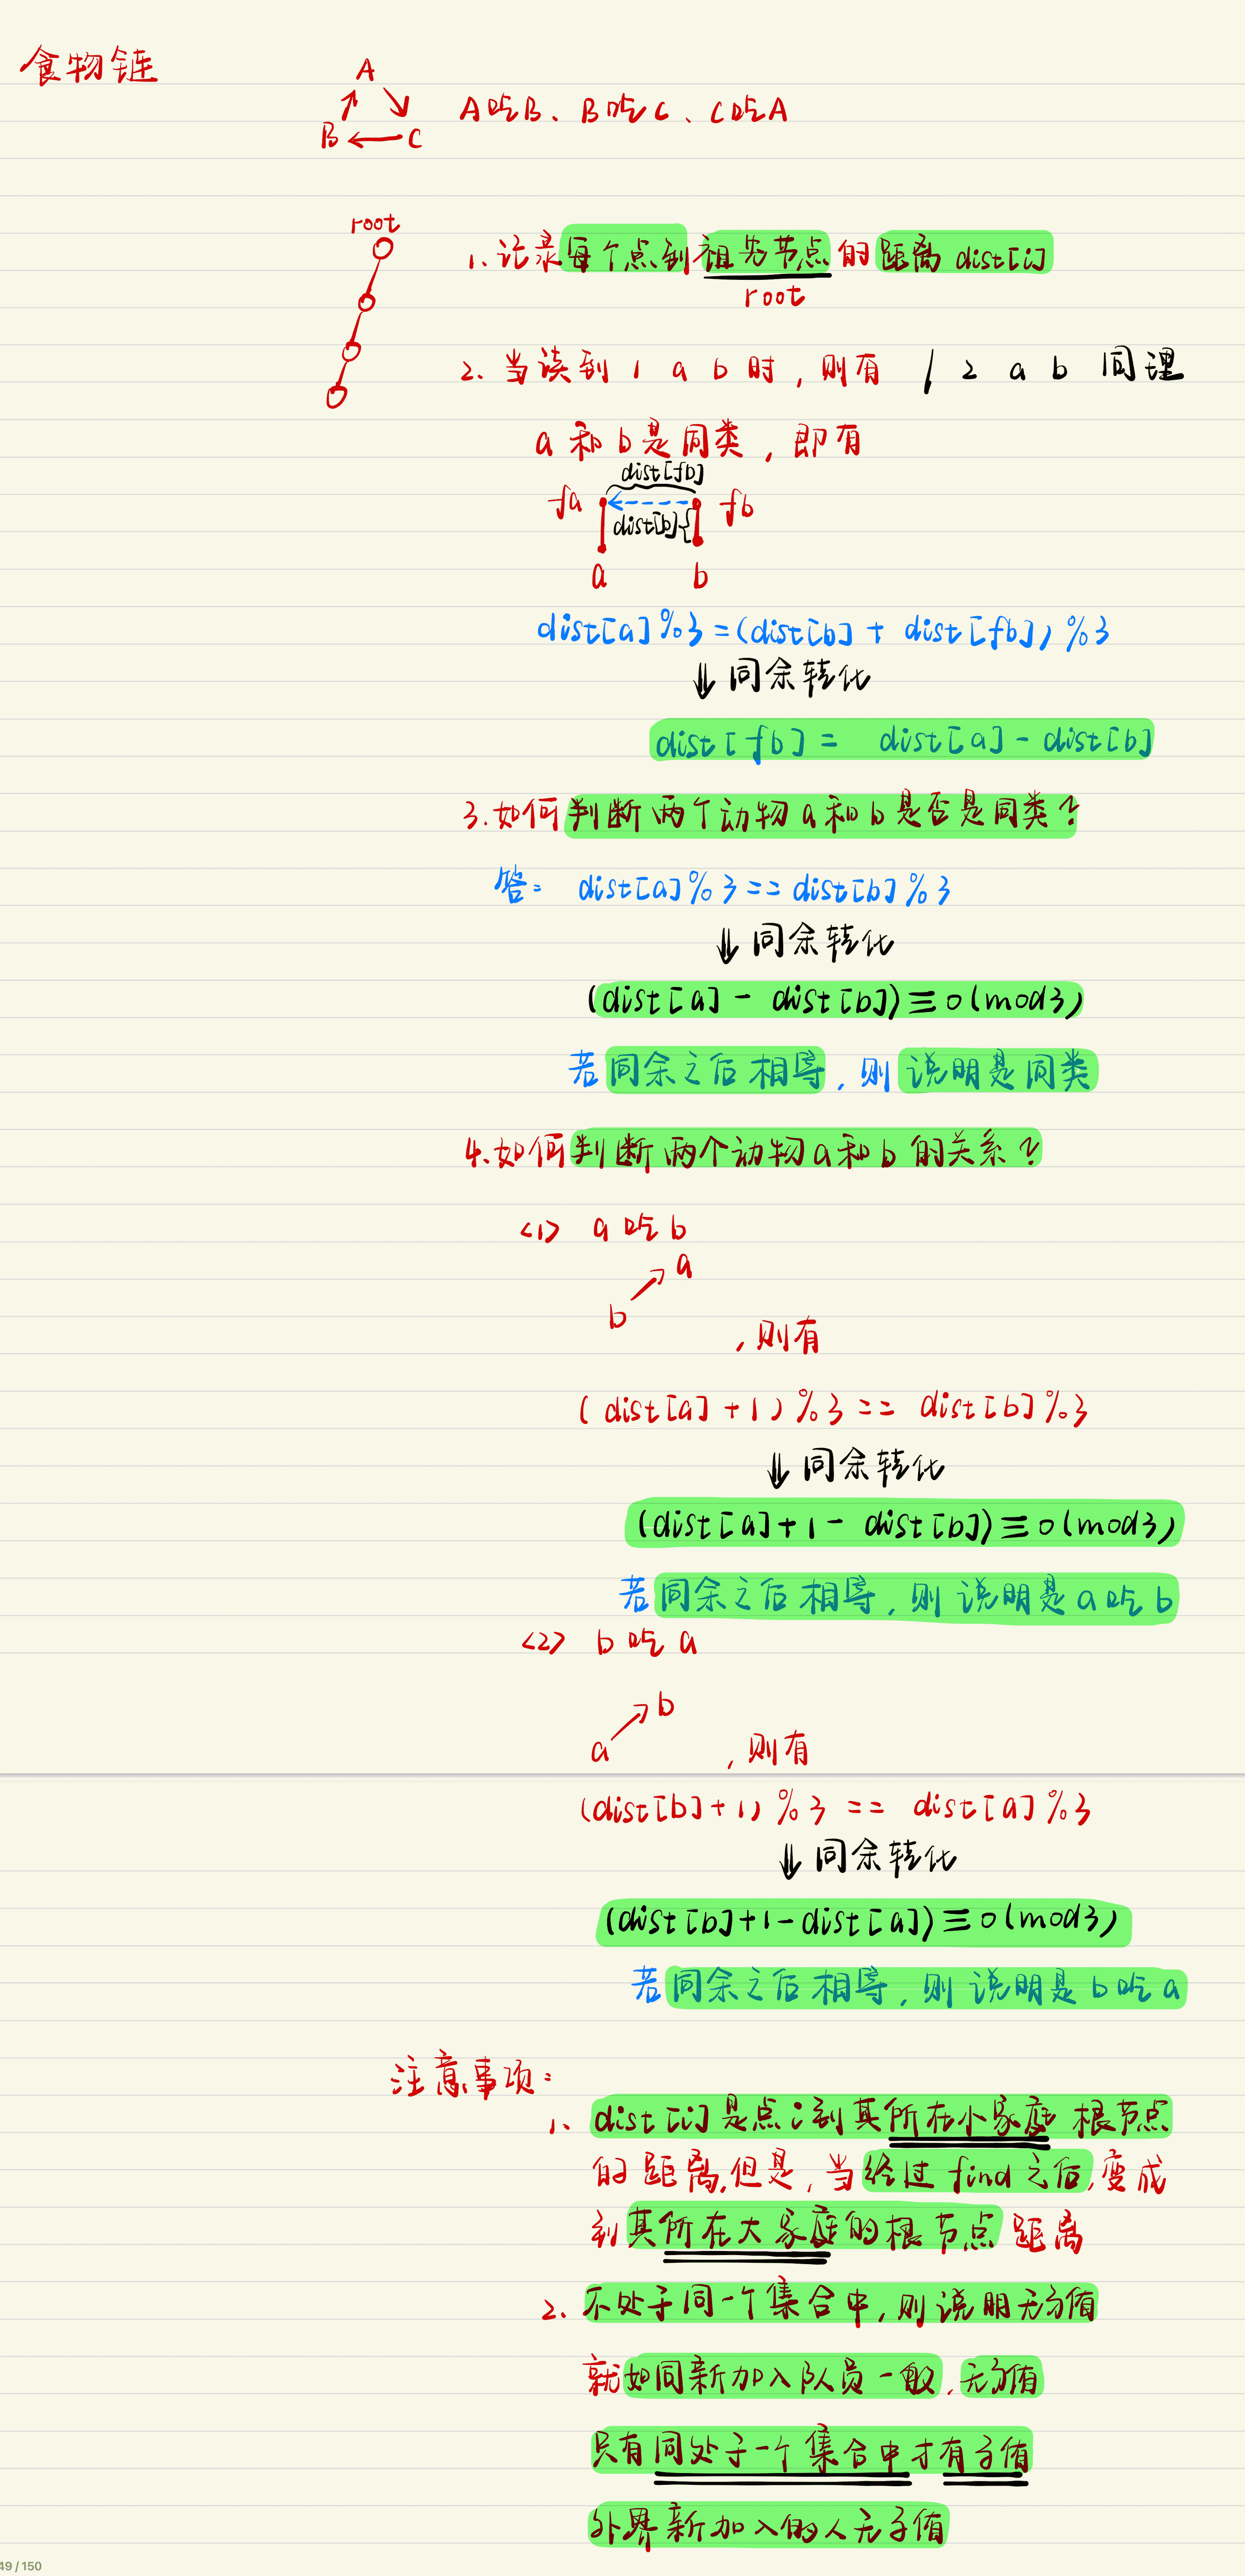 食物链
A
B C
A吃B、B吃C、C吃A
root
1.记录每个点到祖先节点的距离 dist[i]
root
2.当读到 1 a b 时,则有 / 2 a b 同理
a 和 b 是同类,即有
dist[fb]
fa fb
dist[b]
a b
dist[a]%3=(dist[b]+dist[fb])%3
⇓同余转化
dist[fb]= dist[a]-dist[b]
3.如何判断两个动物a和b是否是同类?
答: dist[a]%3==dist[b]%3
⇓同余转化
(dist[a]-dist[b])≡0(mod3)
若同余之后相等,则说明是同类
4.如何判断两个动物a和b的关系?
<1> a吃b
a
b
,则有
(dist[a]+1)%3== dist[b]%3
⇓同余转化
(dist[a]+1-dist[b])≡0(mod3)
若同余之后相等,则说明是a吃b
<2> b吃a
b
a
,则有
(dist[b]+1)%3== dist[a]%3
⇓同余转化
(dist[b]+1-dist[a])≡0(mod3)
若同余之后相等,则说明是b吃a
注意事项:
1、dist[i]是点i到其所在小家庭根节点
的距离,但是,当经过find之后,变成
到其所在大家庭的根节点距离
2、不处于同一个集合中,则说明无矛盾
就如同新加入队员一般,无矛盾
只有同处于一个集合中才有矛盾
外界新加入的人无矛盾
49 / 150